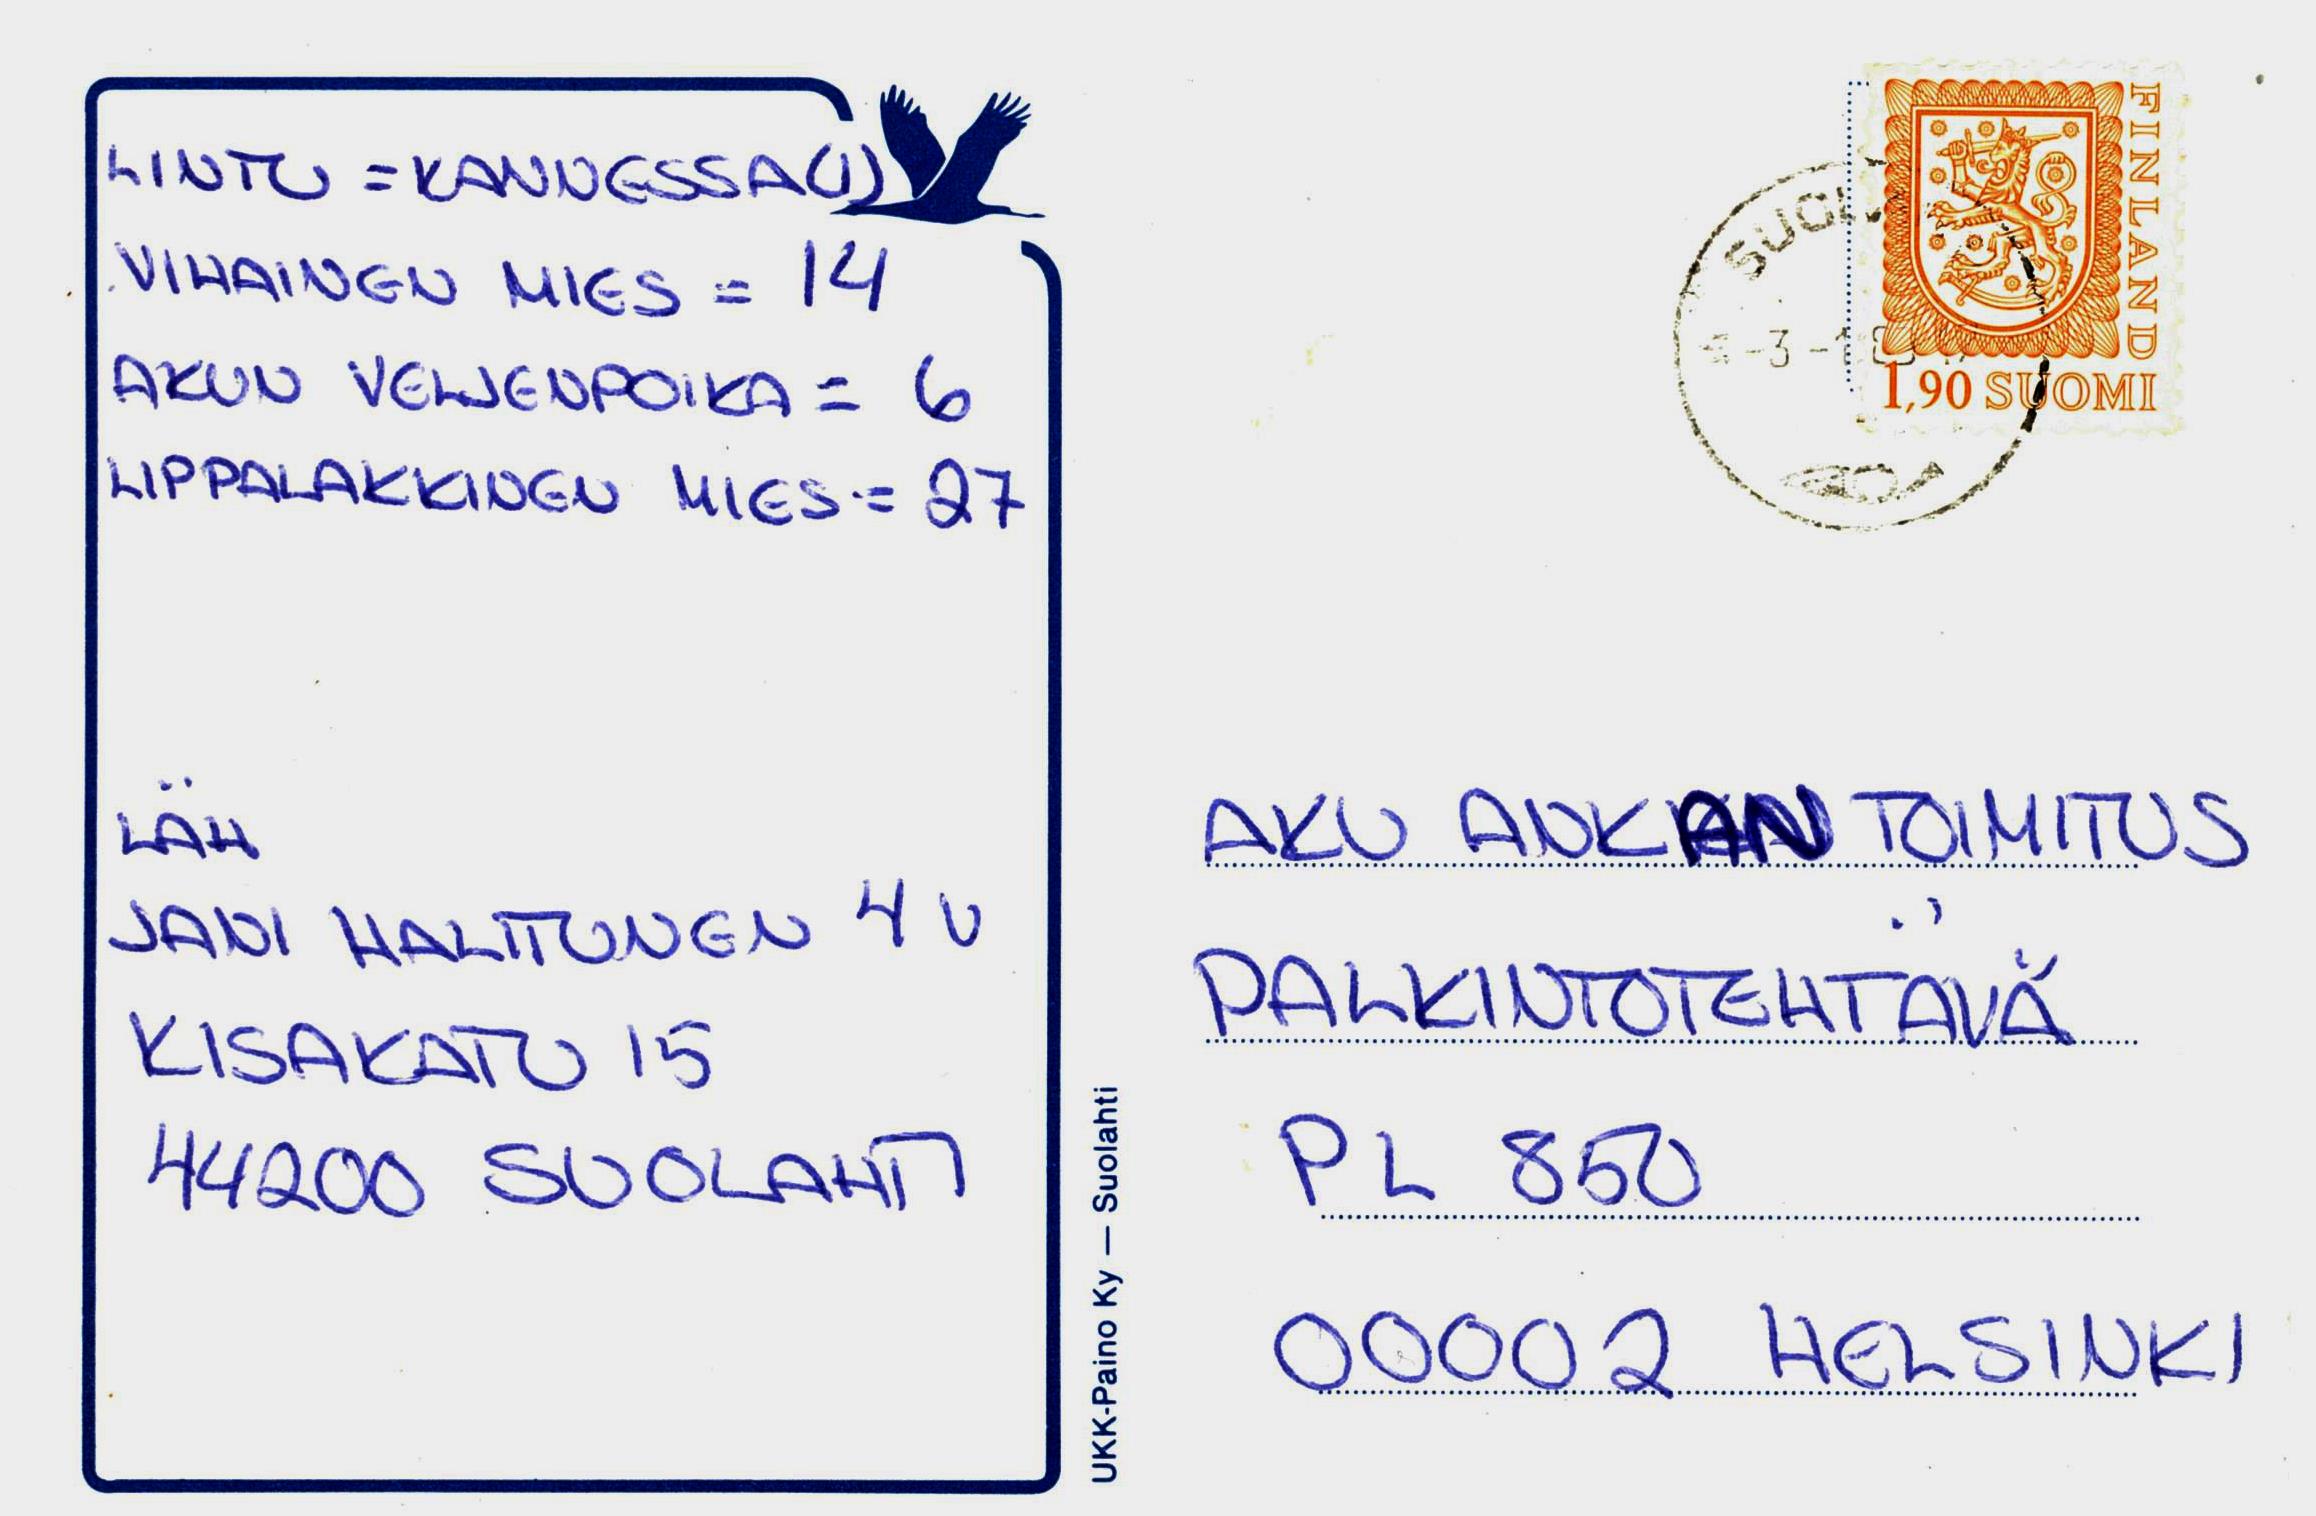 LINTU = KANNESSA(1)
VIHAINEN MIES = 14
AKUN VELJENPOIKA = 6
LIPPALAKKINEN MIES = 27
LÄH
JANI HALTTUNEN 4 V
KISAKATU 15
44200 SUOLAHTI
UKK-Paino Ky — Suolahti
FINLAND
1,90 SUOMI
AKU ANKAN TOIMITUS
PALKINTOTEHTÄVÄ
PL 850
00002 HELSINKI